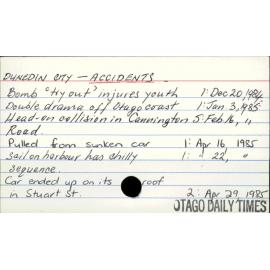 DUNEDIN CITY — ACCIDENTS
Bomb 'try out' injures youth 1: Dec 20, 1984
Double drama off Otago coast 1: Jan 3, 1985
Head-on collision in Cannington 5: Feb 16, "
Road.
Pulled from sunken car 1: Apr 16, 1985
Sail on harbour has chilly 1: " 22, "
sequence.
Car ended up on its roof
in Stuart St. 2: Apr 29, 1985
OTAGO DAILY TIMES